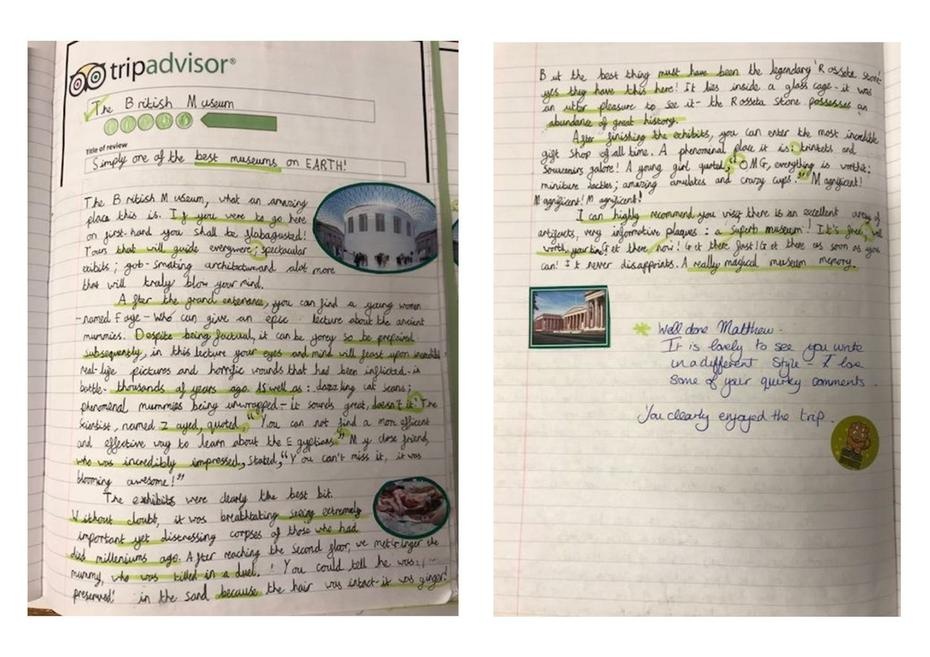 tripadvisor®
The British Museum
Title of review
Simply one of the best museums on EARTH!
The British Museum, what an amazing
place this is. If you were to go here
on first-hand you shall be flabagusted!
Tours that will guide everywere; spectacular
exibits; gob-smaking architecture and alot more
that will truly blow your mind.
After the grand enterence, you can find a young women
-named Faye- who can give an epic lecture about the ancient
mummies. Despite being factual, it can be gorey so be prepaired
subsequently, in this lecture your eyes and mind will feast upon incredible
real-life pictures and horrific wounds that had been inflicted in
battle- thousands of years ago. As well as: dazzling cat scans;
phenomenal mummies being unwrapped- it sounds great, doesn't it? The
scientist, named Zayed, quoted, "You can not find a more efficent
and effective way to learn about the Egyptians." My close friend,
who was incredibly impressed, stated, "You can't miss it, it was
blooming awesome!"
The exhibits were clearly the best bit.
Without doubt, it was breathtaking seeing extremely
important yet distressing corpses of those who had
died milleniums ago. After reaching the second floor, we met ginger the
mummy, who was killed in a duel. You could tell he was
preserved in the sand because the hair was intact-it was ginger!
But the best thing must have been the legendary 'Rosseta stone'
yes they have this here! It lies inside a glass cage- it was
an utter pleasure to see it- the Rosseta Stone possesses an
abundance of great history.
After finishing the exhibits, you can enter the most incredible
gift shop of all time. A phenominal place it is: trinkets and
souvenirs galore! A young girl quoted, "OMG, everything is worth it:
miniture; amazing amulates and crazy cups." Magnificent!
Magnificent! Magnificent!
I can highly recommend you visit there is an excellent array of
artifacts, very informative plaques: a superb museum! It's free, well
worth your time! Get there now! Get there fast! Get there as soon as you
can! It never disapprints. A really magical museum memory.
Well done Matthew -
It is lovely to see you write
in a different style - I love
some of your quirky comments.
You clearly enjoyed the trip.